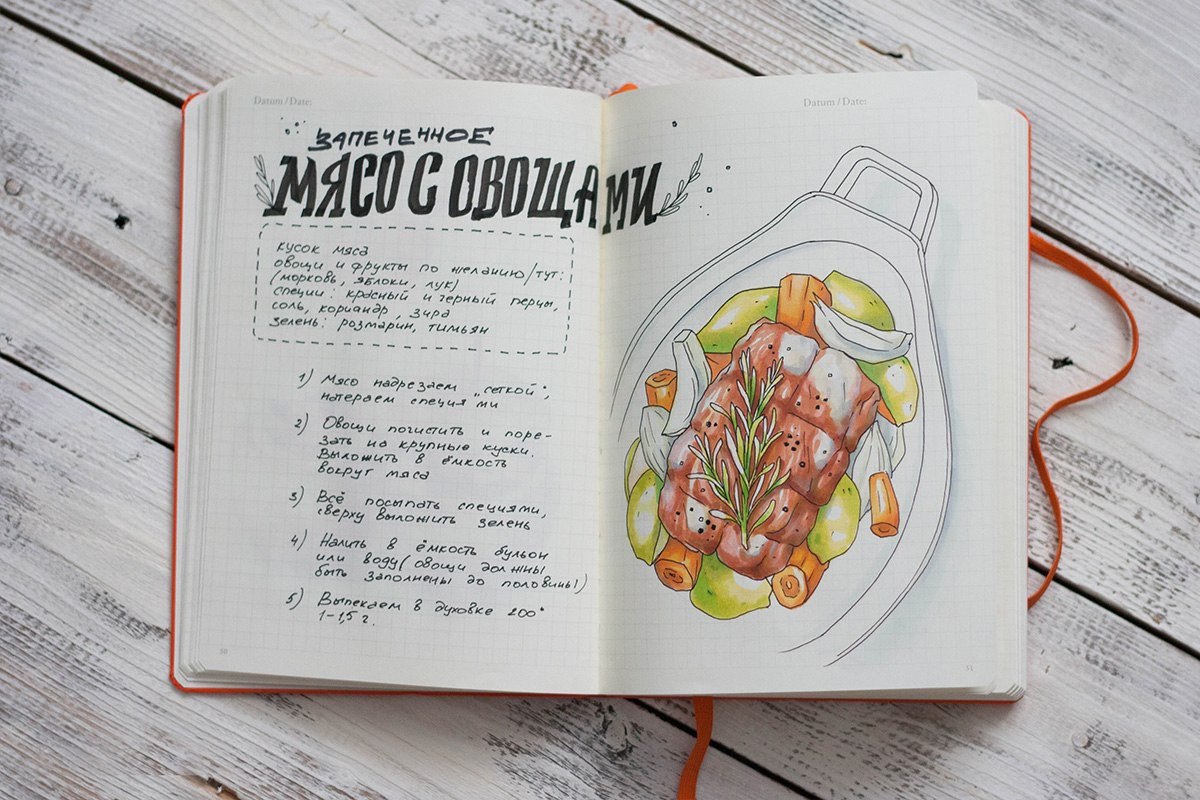 Datum / Date:
ЗАПЕЧЕННОЕ
МЯСО С ОВОЩАМИ
кусок мяса
овощи и фрукты по желанию/тут:
(морковь, яблоки, лук)
специи: красный и черный перцы,
соль, кориандр, зира
зелень: розмарин, тимьян
1) Мясо надрезаем „сеткой“,
натераем специями
2) Овощи почистить и поре-
зать на крупные куски.
Выложить в ёмкость
вокруг мяса
3) Всё посыпать специями,
сверху выложить зелень
4) Налить в ёмкость бульон
или воду (овощи должны
быть заполнены до половины)
5) Выпекаем в духовке 200°
1-1,5 г.
50
Datum / Date:
51